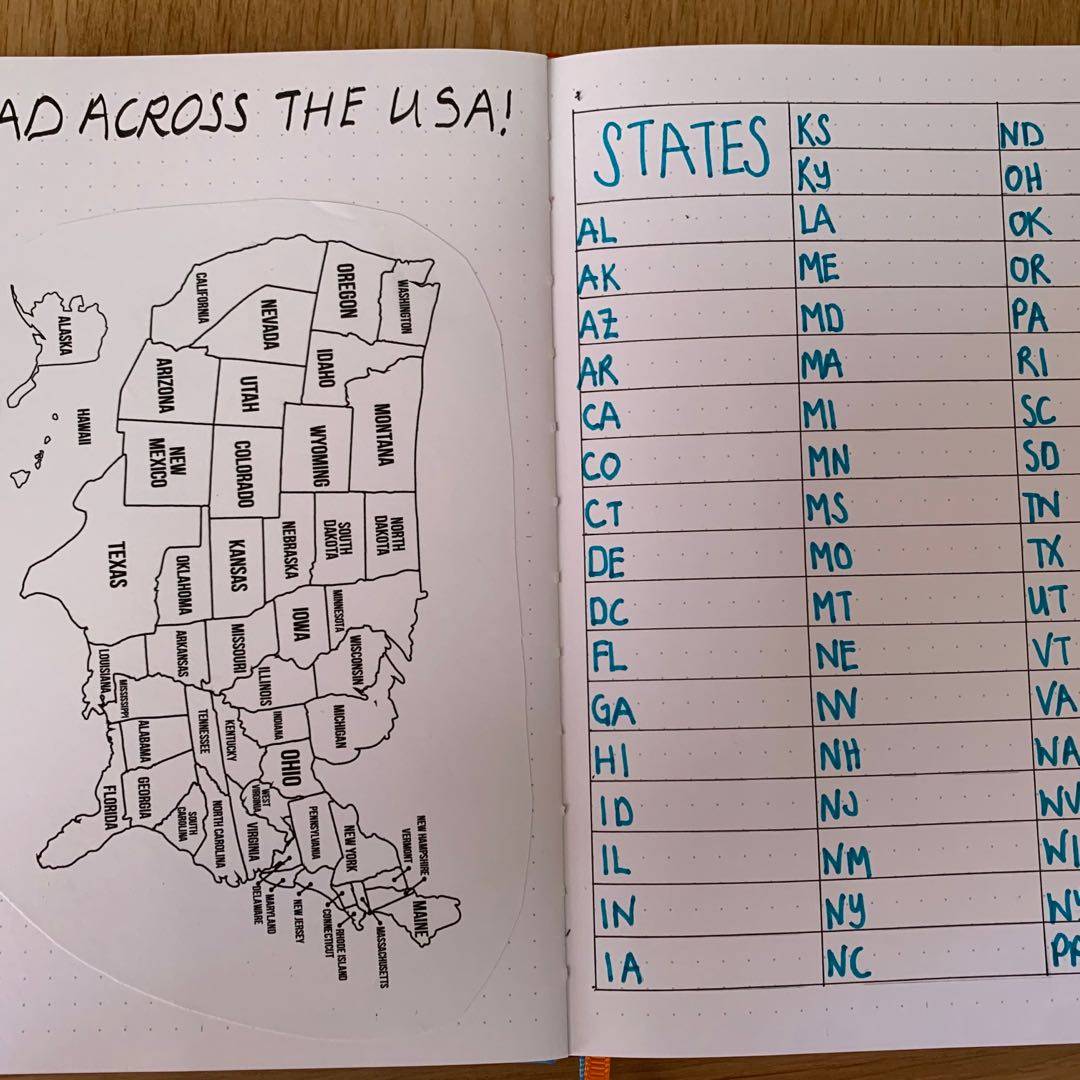 AD ACROSS THE USA!
WASHINGTON
OREGON
CALIFORNIA
NEVADA
IDAHO
MONTANA
WYOMING
UTAH
ARIZONA
COLORADO
NEW
MEXICO
ALASKA
HAWAII
NORTH
DAKOTA
SOUTH
DAKOTA
NEBRASKA
KANSAS
OKLAHOMA
TEXAS
MINNESOTA
IOWA
MISSOURI
ARKANSAS
LOUISIANA
WISCONSIN
ILLINOIS
MISSISSIPPI
MICHIGAN
INDIANA
KENTUCKY
TENNESSEE
ALABAMA
OHIO
GEORGIA
FLORIDA
WEST
VIRGINIA
VIRGINIA
NORTH CAROLINA
SOUTH
CAROLINA
PENNSYLVANIA
NEW YORK
NEW HAMPSHIRE
VERMONT
MAINE
MASSACHUSETTS
RHODE ISLAND
CONNECTICUT
NEW JERSEY
MARYLAND
DELAWARE
STATES
AL
AK
AZ
AR
CA
CO
CT
DE
DC
FL
GA
HI
ID
IL
IN
IA
KS
KY
LA
ME
MD
MA
MI
MN
MS
MO
MT
NE
NV
NH
NJ
NM
NY
NC
ND
OH
OK
OR
PA
RI
SC
SD
TN
TX
UT
VT
VA
WA
WV
WI
WY